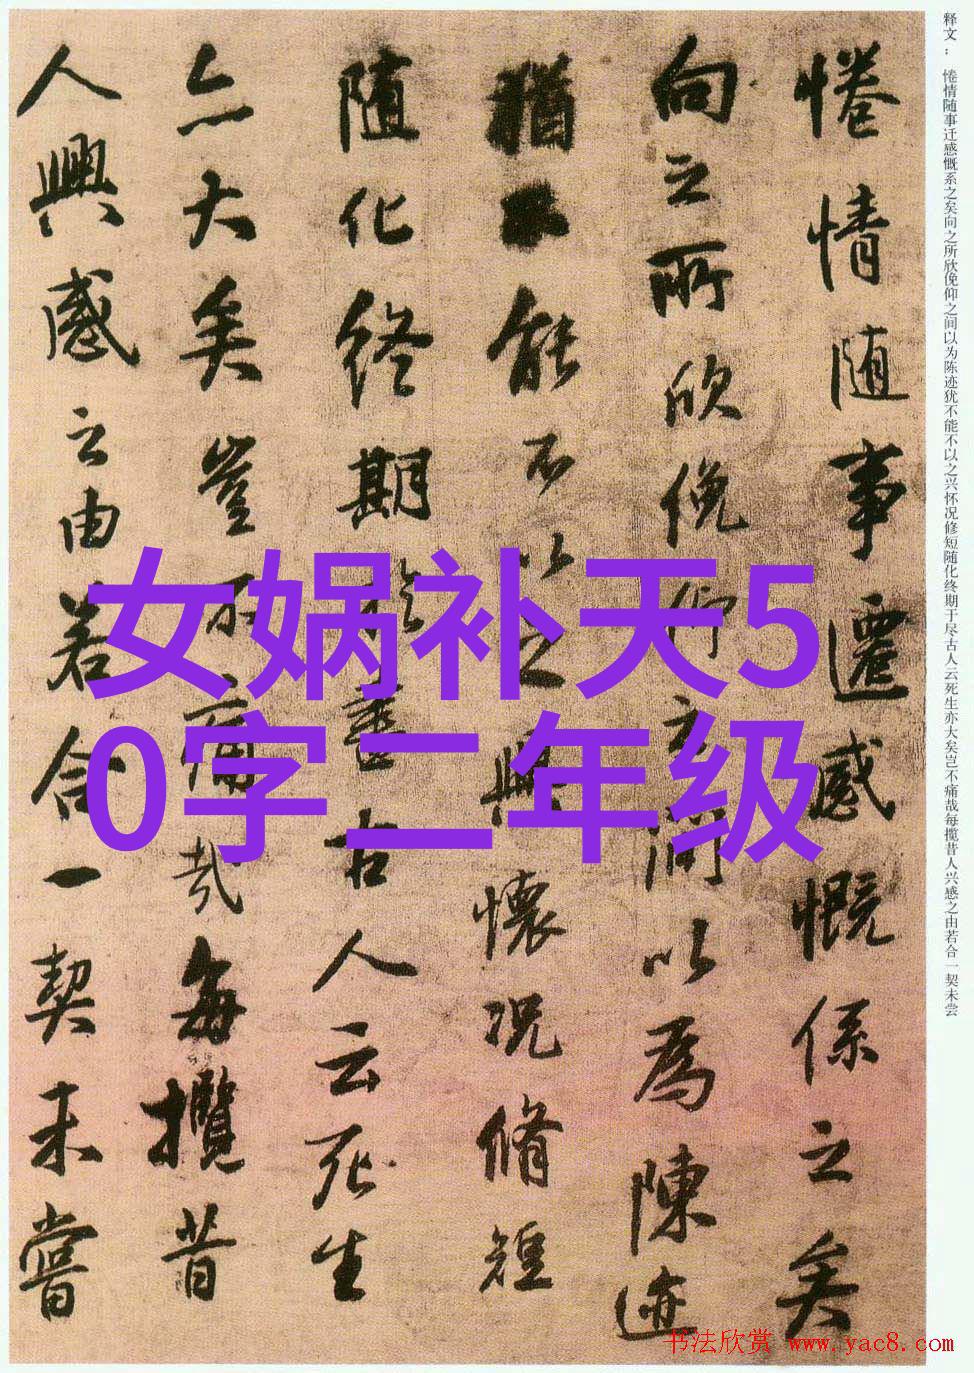 释文： 惓情随事迁感慨系之矣向之所欣俛仰之间以为陈迹犹不能不以之兴怀况修短随化终期于尽古人云死生亦大矣岂不痛哉每揽昔人兴感之由若合一契未尝
惓情随事遷感慨係之矣
向之所欣俛仰之间以為陳迹
猶不能不以之興懷况脩短
随化终期於盡古人云死生
亦大矣豈不痛哉每攬昔
人興感之由若合一契未嘗
女娲补天5
0字二年级
书法欣赏 www.yac8.com